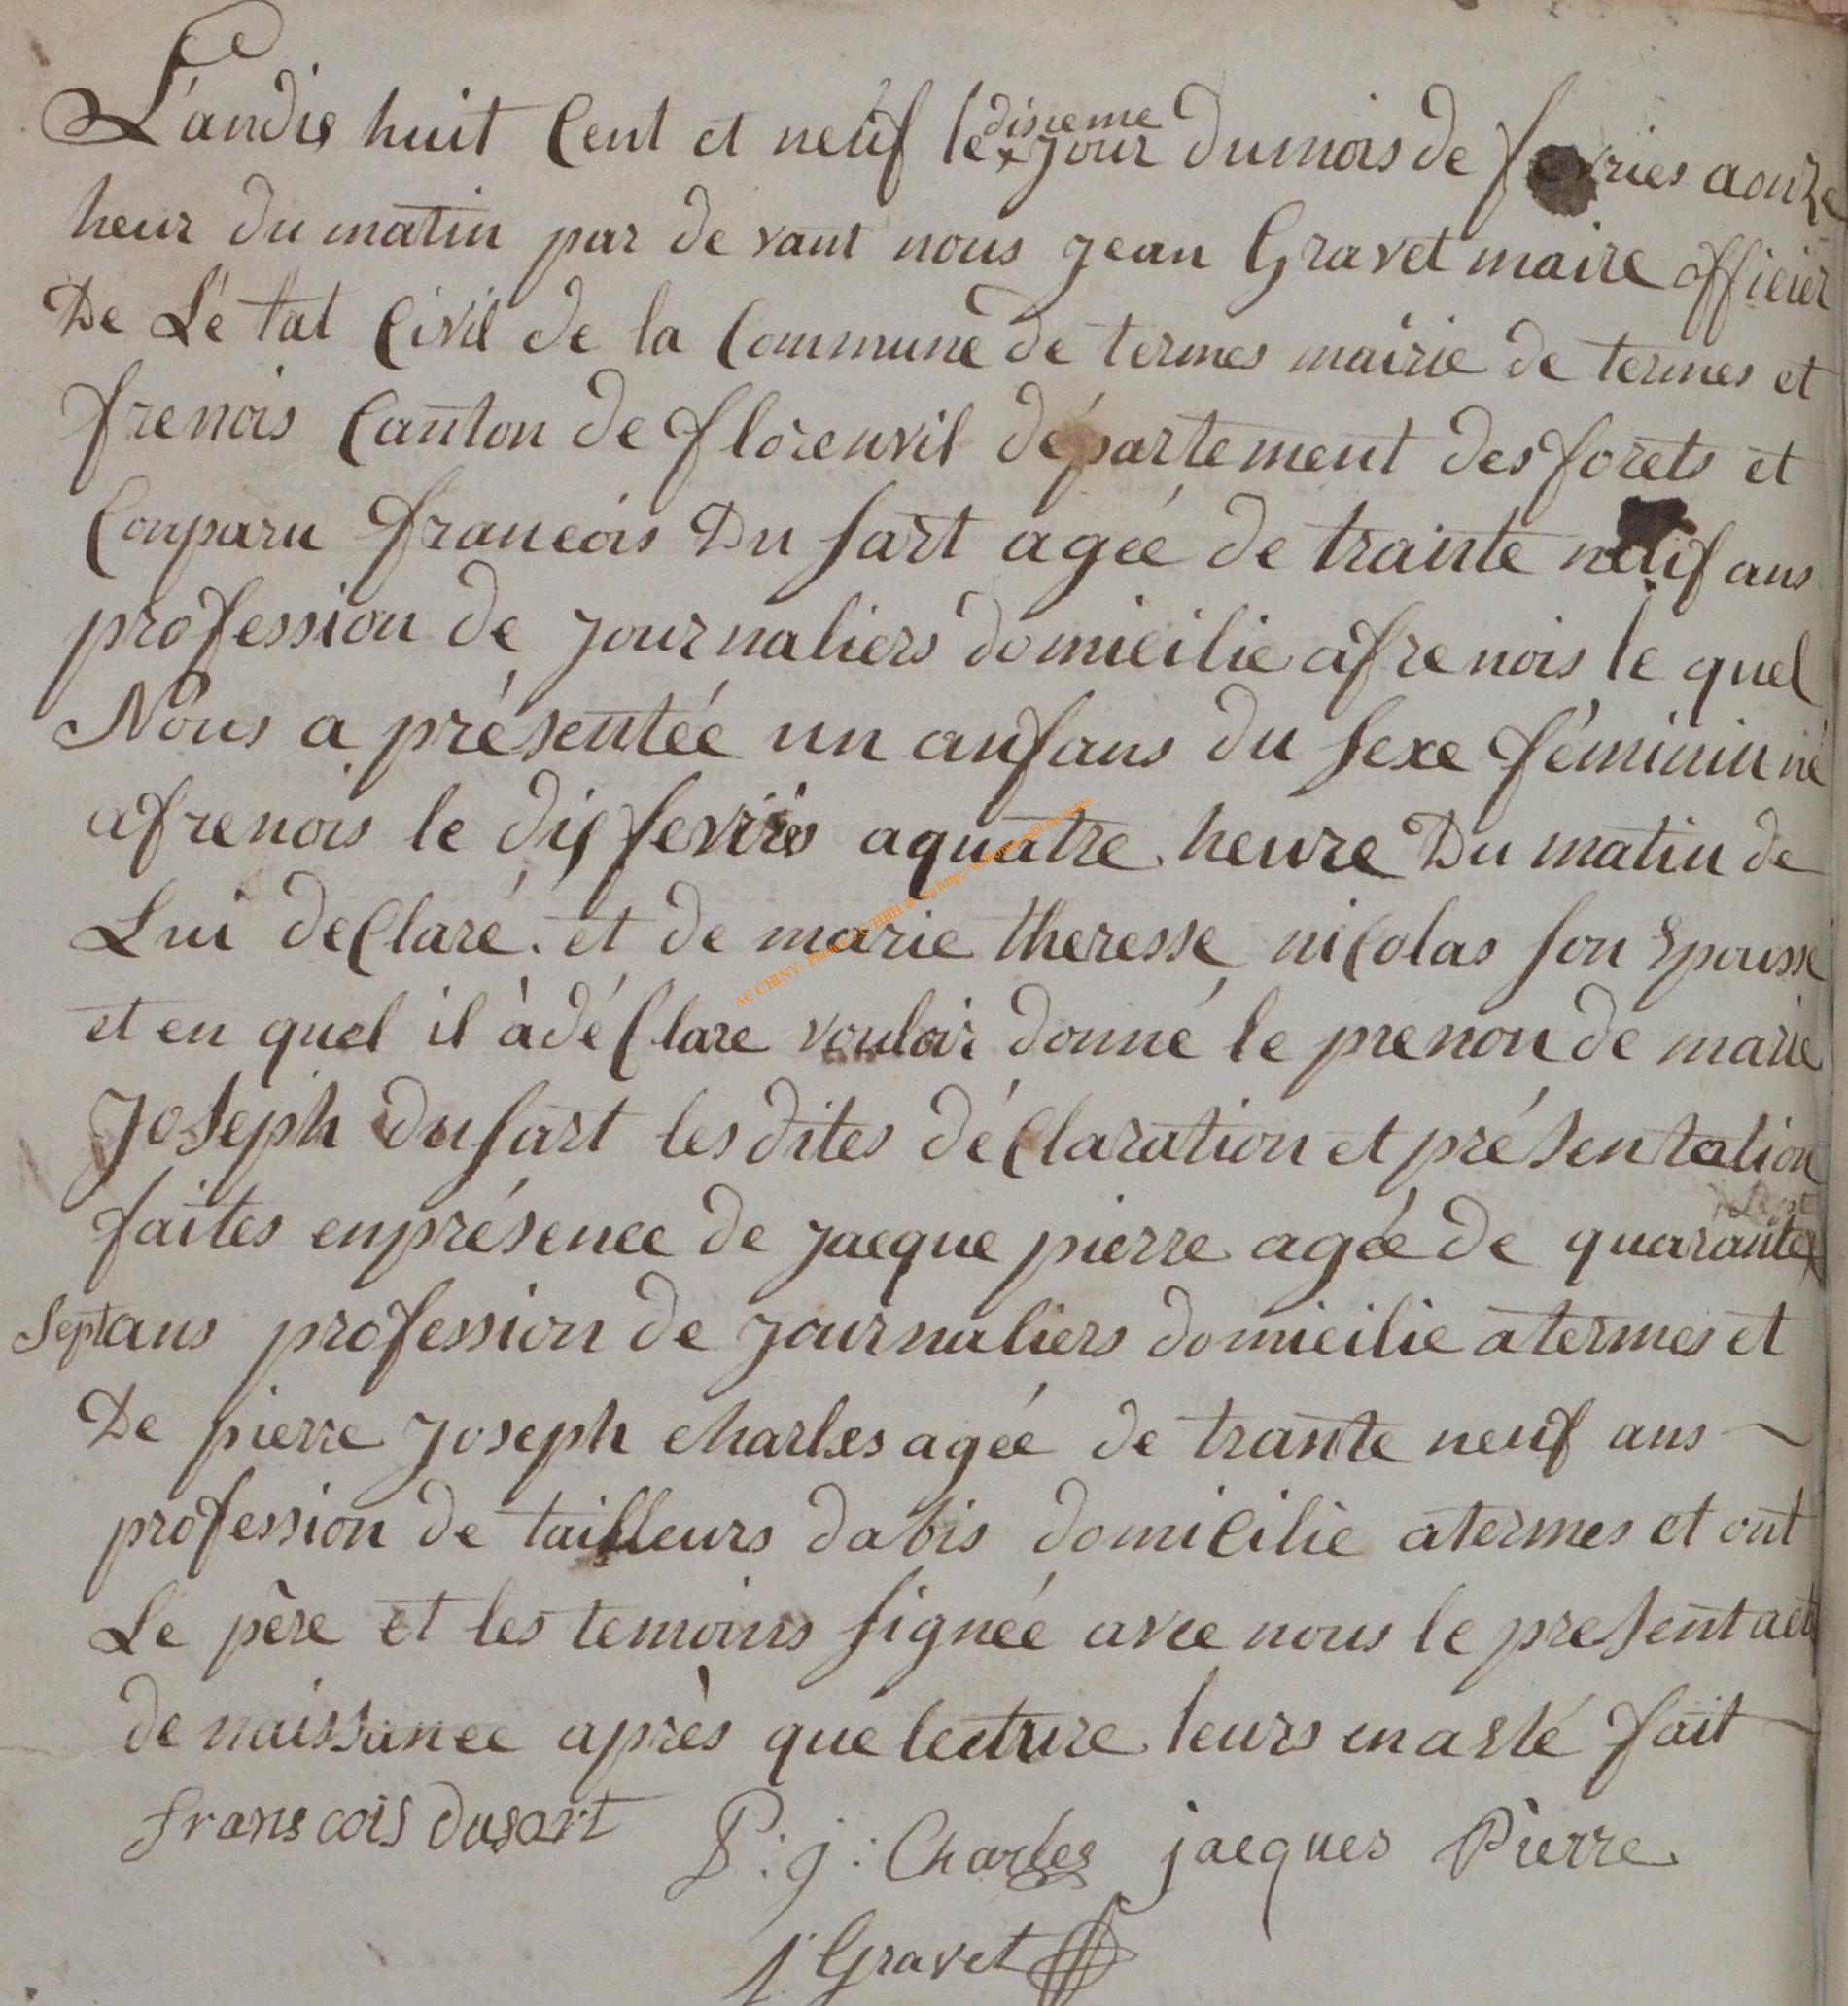 L'andis huit Cent et neuf le disieme jour du mois de fevries a onze
heur du matin par de vant nous jean Gravet maire officier
De L'é tat Civil de la Commune de termes mairie de termes et
frenois Canton de florenvil département des forets et
Conparu francois Du sart agée de trainte neuf ans
profession de journaliers domicilie a frenois le quel
Nous a présentée un anfans du sexe féminin né
a frenois le dis fevries a quatre heure Du matin de
Lui de Claré. et de marie theresse nicolas son Epousse
et en quel il à dé Clare vouloir donné le prenon de marie
Joseph du sart les dites dé Claration et présentation
faites en présence de jacque pierre agée de quarante
sept ans profession de journaliers domicilie a termes et
De pierre joseph charles agée de trante neuf ans
profession de tailleurs dabis domicilié a termes et ont
Le père et les temoins signée avec nous le present act
de naissance après que lecture leurs en a été fait
frans cois dusart P: j: Charles jacques Pierre
j. Gravet
AC CHINY - Photos